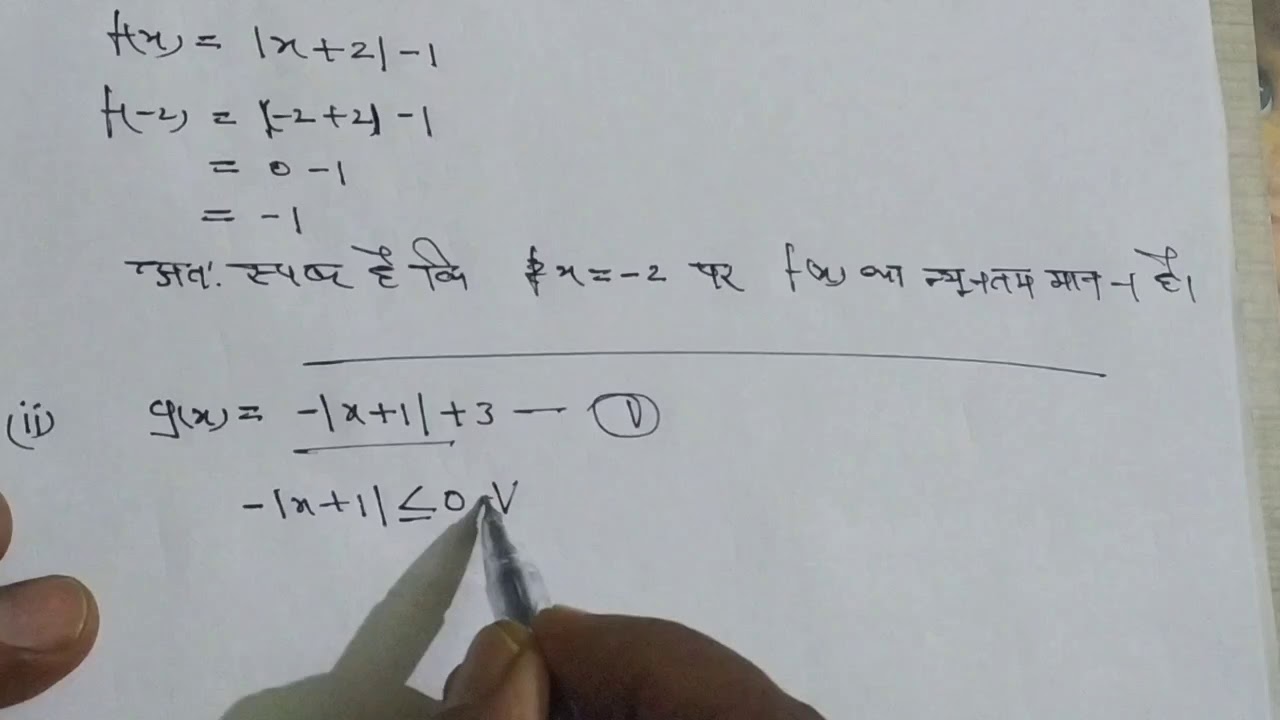 f(x) = |x+2| -1
f(-2) = |-2+2| -1
= 0 -1
= -1
अतः स्पष्ट है कि x = -2 पर f(x) का न्यूनतम मान -1 है।
(ii) g(x) = -|x+1| +3 — V
-|x+1| ≤ 0 V